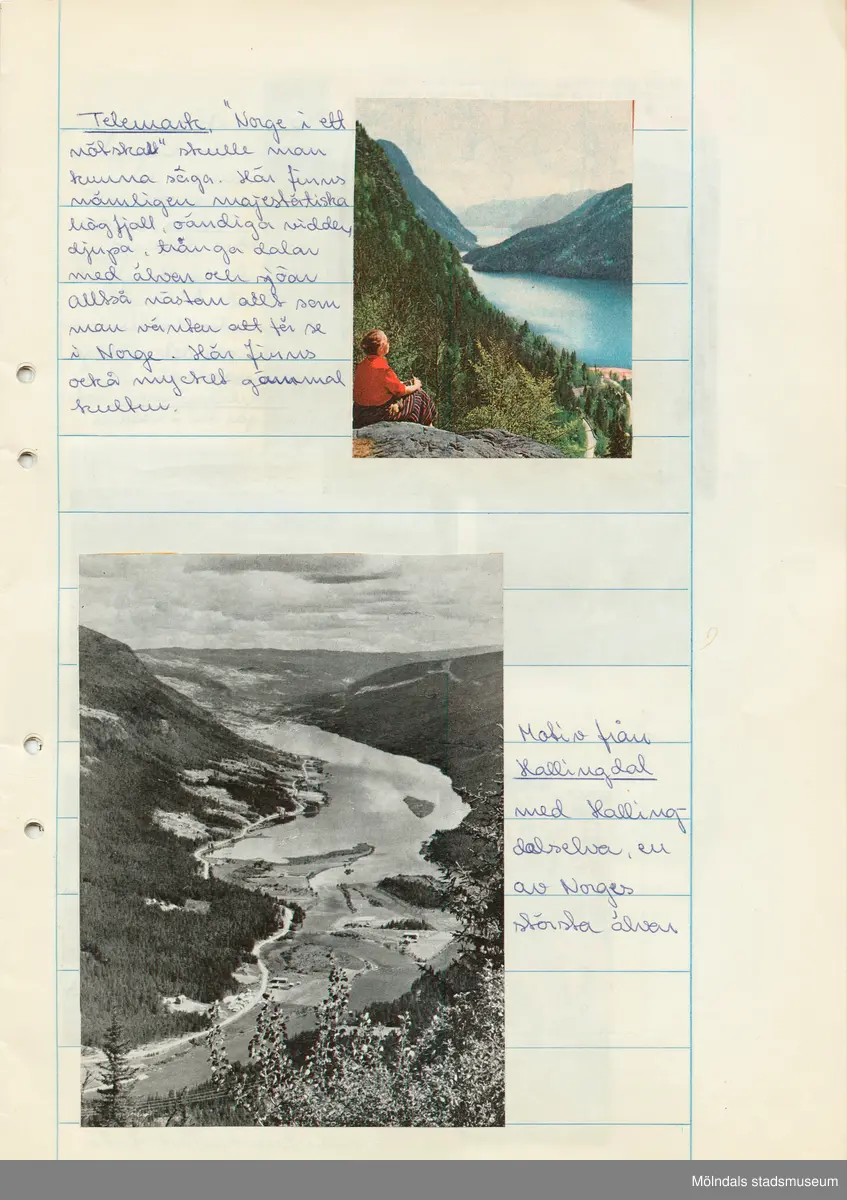 Telemark, "Norge i ett
nötskal" skulle man
kunna säga. Här finns
nämligen majestätiska
högfjäll, oändliga vidder,
djupa, trånga dalar
med älver och sjöar
alltså nästan allt som
man vänter att få se
i Norge. Här finns
också mycket gammal
kultur.
Motiv från
Hallingdal
med Halling-
dalselva, en
av Norges
största älver
Mölndals stadsmuseum